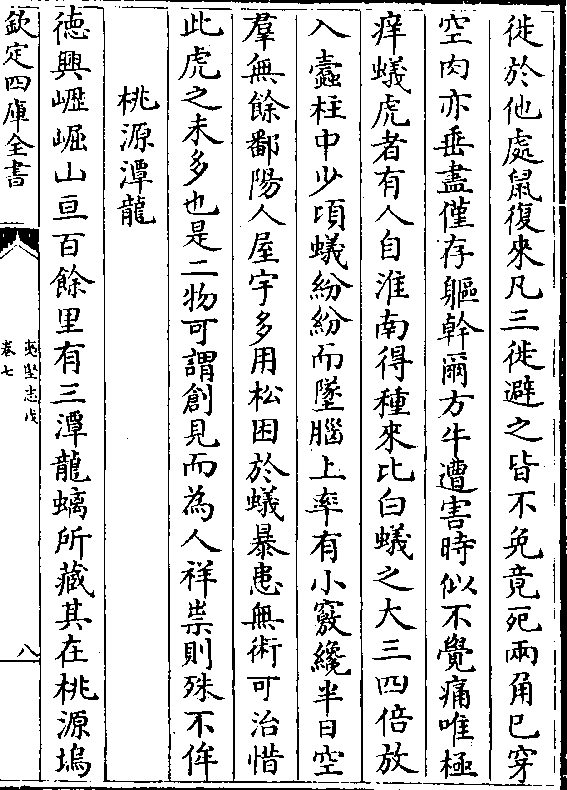 徙於他處鼠復來凡三徙避之皆不免竟死兩角已穿
空肉亦垂盡僅存軀幹爾方牛遭害時似不覺痛唯極
痒蟻虎者有人自淮南得種來比白蟻之大三四倍放
入蠧柱中少頃蟻紛紛而墜腦上率有小竅纔半日空
羣無餘鄱陽人屋宇多用松困於蟻暴患無術可治惜
此虎之未多也是二物可謂創見而為人祥祟則殊不侔
桃源潭龍
德興𡾰崛山亘百餘里有三潭龍螭所藏其在桃源塢
欽定四庫全書
夷堅志戊
卷七
八